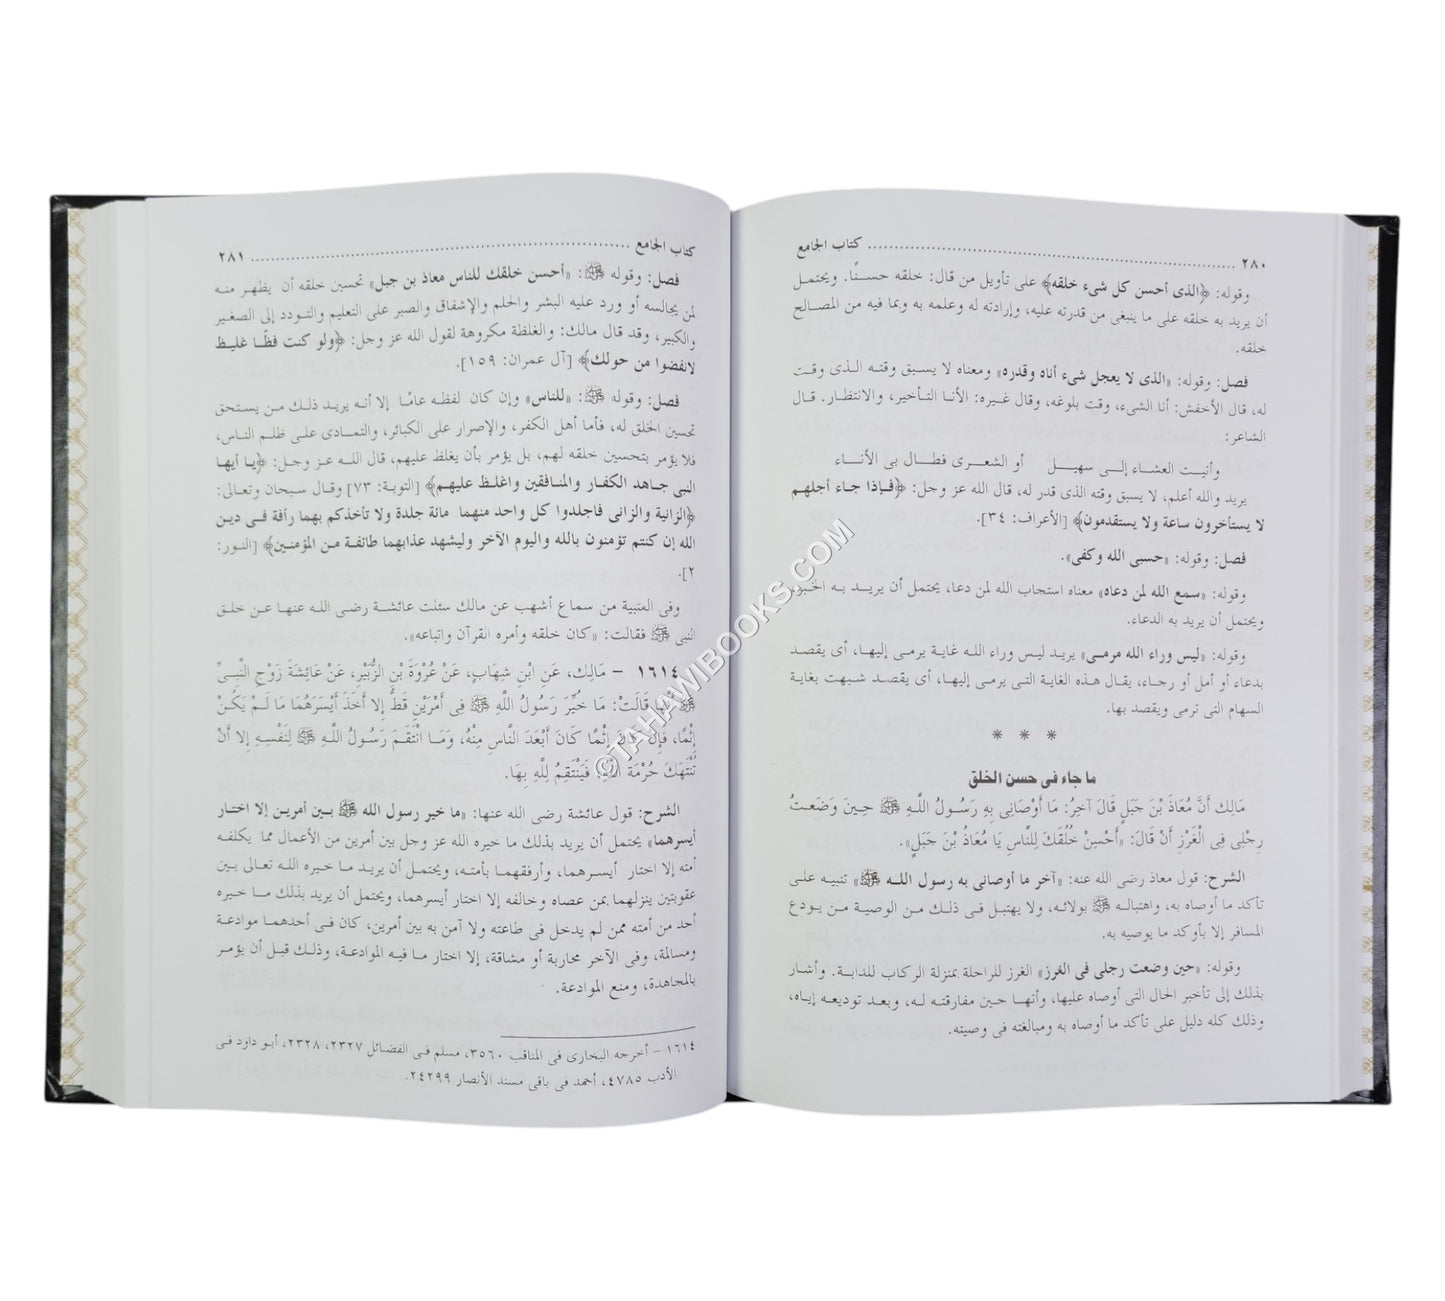 ٢٨٠ ........ كتاب الجامع
وقوله: ﴿الذى أحسن كل شىء خلقه﴾ على تأويل من قال: خلقه حسنًا. ويحتمل
أن يريد به خلقه على ما ينبغى من قدرته عليه، وإرادته له وعلمه به وبما فيه من المصالح
خلقه.
فصل: وقوله: «الذى لا يعجل شىء أناه وقدره» ومعناه لا يسبق وقته الذى وقت
له، قال الأخفش: أنا الشىء، وقت بلوغه، وقال غيره: الأنا التأخير، والانتظار. قال
الشاعر:
وأنيت العشاء إلى سهيل أو الشعرى فطال بى الأناء
يريد والله أعلم، لا يسبق وقته الذى قدر له، قال الله عز وجل: ﴿فإذا جاء أجلهم
لا يستأخرون ساعة ولا يستقدمون﴾ [الأعراف: ٣٤].
فصل: وقوله: «حسبى الله وكفى».
وقوله: «سمع الله لمن دعاه» معناه استجاب الله لمن دعا، يحتمل أن يريد به الخبر،
ويحتمل أن يريد به الدعاء.
وقوله: «ليس وراء الله مرمى» يريد ليس وراء الله غاية يرمى إليها، أى يقصد
بدعاء أو أمل أو رجاء، يقال هذه الغاية التى يرمى إليها، أى يقصد شبهت بغاية
السهام التى ترمى ويقصد بها.
* * *
ما جاء فى حسن الخلق
مَالِك أَنَّ مُعَاذَ بْنَ جَبَلٍ قَالَ آخِرُ: مَا أَوْصَانِى بِهِ رَسُولُ اللَّهِ ﷺ حِينَ وَضَعَتُ
رِجْلِى فِى الْغَرْزِ أَنْ قَالَ: «أَحْسِنْ خُلُقَكَ لِلنَّاسِ يَا مُعَاذُ بْنَ جَبَلٍ».
الشرح: قول معاذ رضى الله عنه: «آخر ما أوصانى به رسول الله ﷺ» تنبيه على
تأكد ما أوصاه به، واهتباله ﷺ بولائه، ولا يهتبل فى ذلك من الوصية من يودع
المسافر إلا بأوكد ما يوصيه به.
وقوله: «حين وضعت رجلى فى الغرز» الغرز للراحلة بمنزلة الركاب للدابة. وأشار
بذلك إلى تأخير الحال التى أوصاه عليها، وأنهـا حين مفارقته له، وبعد توديعه إياه،
وذلك كله دليل على تأكد ما أوصاه به ومبالغته فى وصيته.
كتاب الجامع ........ ٢٨١
فصل: وقوله ﷺ: «أحسن خلقك للناس معاذ بن جبل» تحسين خلقه أن يظهر منه
لمن يجالسه أو ورد عليه البشر والحلم والإشفاق والصبر على التعليم والتودد إلى الصغير
والكبير، وقد قال مالك: والغلظة مكروهة لقول الله عز وجل: ﴿ولو كنت فظًا غليظ
لانفضوا من حولك﴾ [آل عمران: ١٥٩].
فصل: وقوله ﷺ: «للناس» وإن كان لفظه عامًا إلا أنه يريد ذلك من يستحق
تحسين الخلق له، فأما أهل الكفر، والإصرار على الكبائر، والتمادى على ظلم الناس،
فلا يؤمر بتحسين خلقه لهم، بل يؤمر بأن يغلظ عليهم، قال الله عز وجل: ﴿يا أيها
النبى جاهد الكفار والمنافقين واغلظ عليهم﴾ [التوبة: ٧٣] وقال سبحان وتعالى:
﴿الزانية والزانى فاجلدوا كل واحد منهما مائة جلدة ولا تأخذكم بهما رأفة فى دين
الله إن كنتم تؤمنون بالله واليوم الآخر وليشهد عذابهما طائفة من المؤمنين﴾ [النور:
٢].
وفى العتبية من سماع أشهب عن مالك سئلت عائشة رضى الله عنها عن خلق
النبى ﷺ فقالت: «كان خلقه وأمره القرآن واتباعه».
١٦١٤ – مَالِك، عَنِ ابْنِ شِهَابٍ، عَنْ عُرْوَةَ بْنِ الزُّبَيْرِ، عَنْ عَائِشَةَ زَوْجِ النَّبِىِّ
ﷺ أَنَّهَا قَالَتْ: مَا خُيِّرَ رَسُولُ اللَّهِ ﷺ فِى أَمْرَيْنِ قَطُّ إِلا أَخَذَ أَيْسَرَهُمَا مَا لَمْ يَكُنْ
إِثْمًا، فَإِنْ كَانَ إِثْمًا كَانَ أَبْعَدَ النَّاسِ مِنْهُ، وَمَا انْتَقَمَ رَسُولُ اللَّهِ ﷺ لِنَفْسِهِ إِلا أَنْ
تُنْتَهَكَ حُرْمَةُ اللَّهِ، فَيَنْتَقِمُ لِلَّهِ بِهَا.
الشرح: قول عائشة رضى الله عنها: «ما خير رسول الله ﷺ بين أمرين إلا اختار
أيسرهما» يحتمل أن يريد بذلك ما خيره الله عز وجل بين أمرين من الأعمال مما يكلفه
أمته إلا اختار أيسرهما، وأرفقهما بأمته، ويحتمل أن يريد ما خيره الله تعالى بين
عقوبتين ينزلهما بمن عصاه وخالفه إلا اختار أيسرهما، ويحتمل أن يريد بذلك ما خيره
أحد من أمته ممن لم يدخل فى طاعته ولا آمن به بين أمرين، كان فى أحدهما موادعة
ومسالمة، وفى الآخر محاربة أو مشاقة، إلا اختار ما فيه الموادعة، وذلك قبل أن يؤمر
بالمجاهدة، ومنع الموادعة.
١٦١٤ – أخرجه البخارى فى المناقب ٣٥٦٠، مسلم فى الفضائل ٢٣٢٧، ٢٣٢٨، أبو داود فى
الأدب ٤٧٨٥، أحمد فى باقى مسند الأنصار ٢٤٢٩٩.
©TAHAWIBOOKS.COM